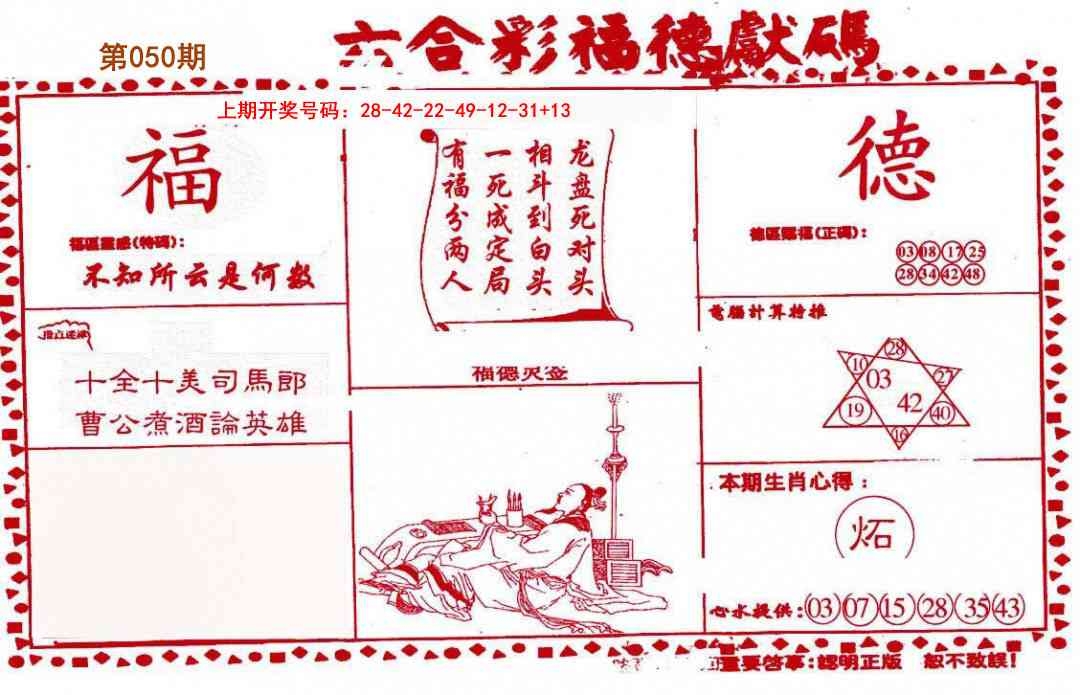 六合彩福德獻碼
第050期
上期开奖号码：28-42-22-49-12-31+13
福
福區靈感(特碼)：
不知所云是何数
十全十美司馬郎
曹公煮酒論英雄
龙盘死对头
相斗到白头
一死成定局
有福分两人
福德灵签
德
德區賜福(正碼)：
03 08 17 25
28 34 42 48
電腦計算特推
28
10 03 27
19 42 40
16
本期生肖心得：
炻
心水提供：03 07 15 28 35 43
重要啓事：認明正版 恕不致誤！